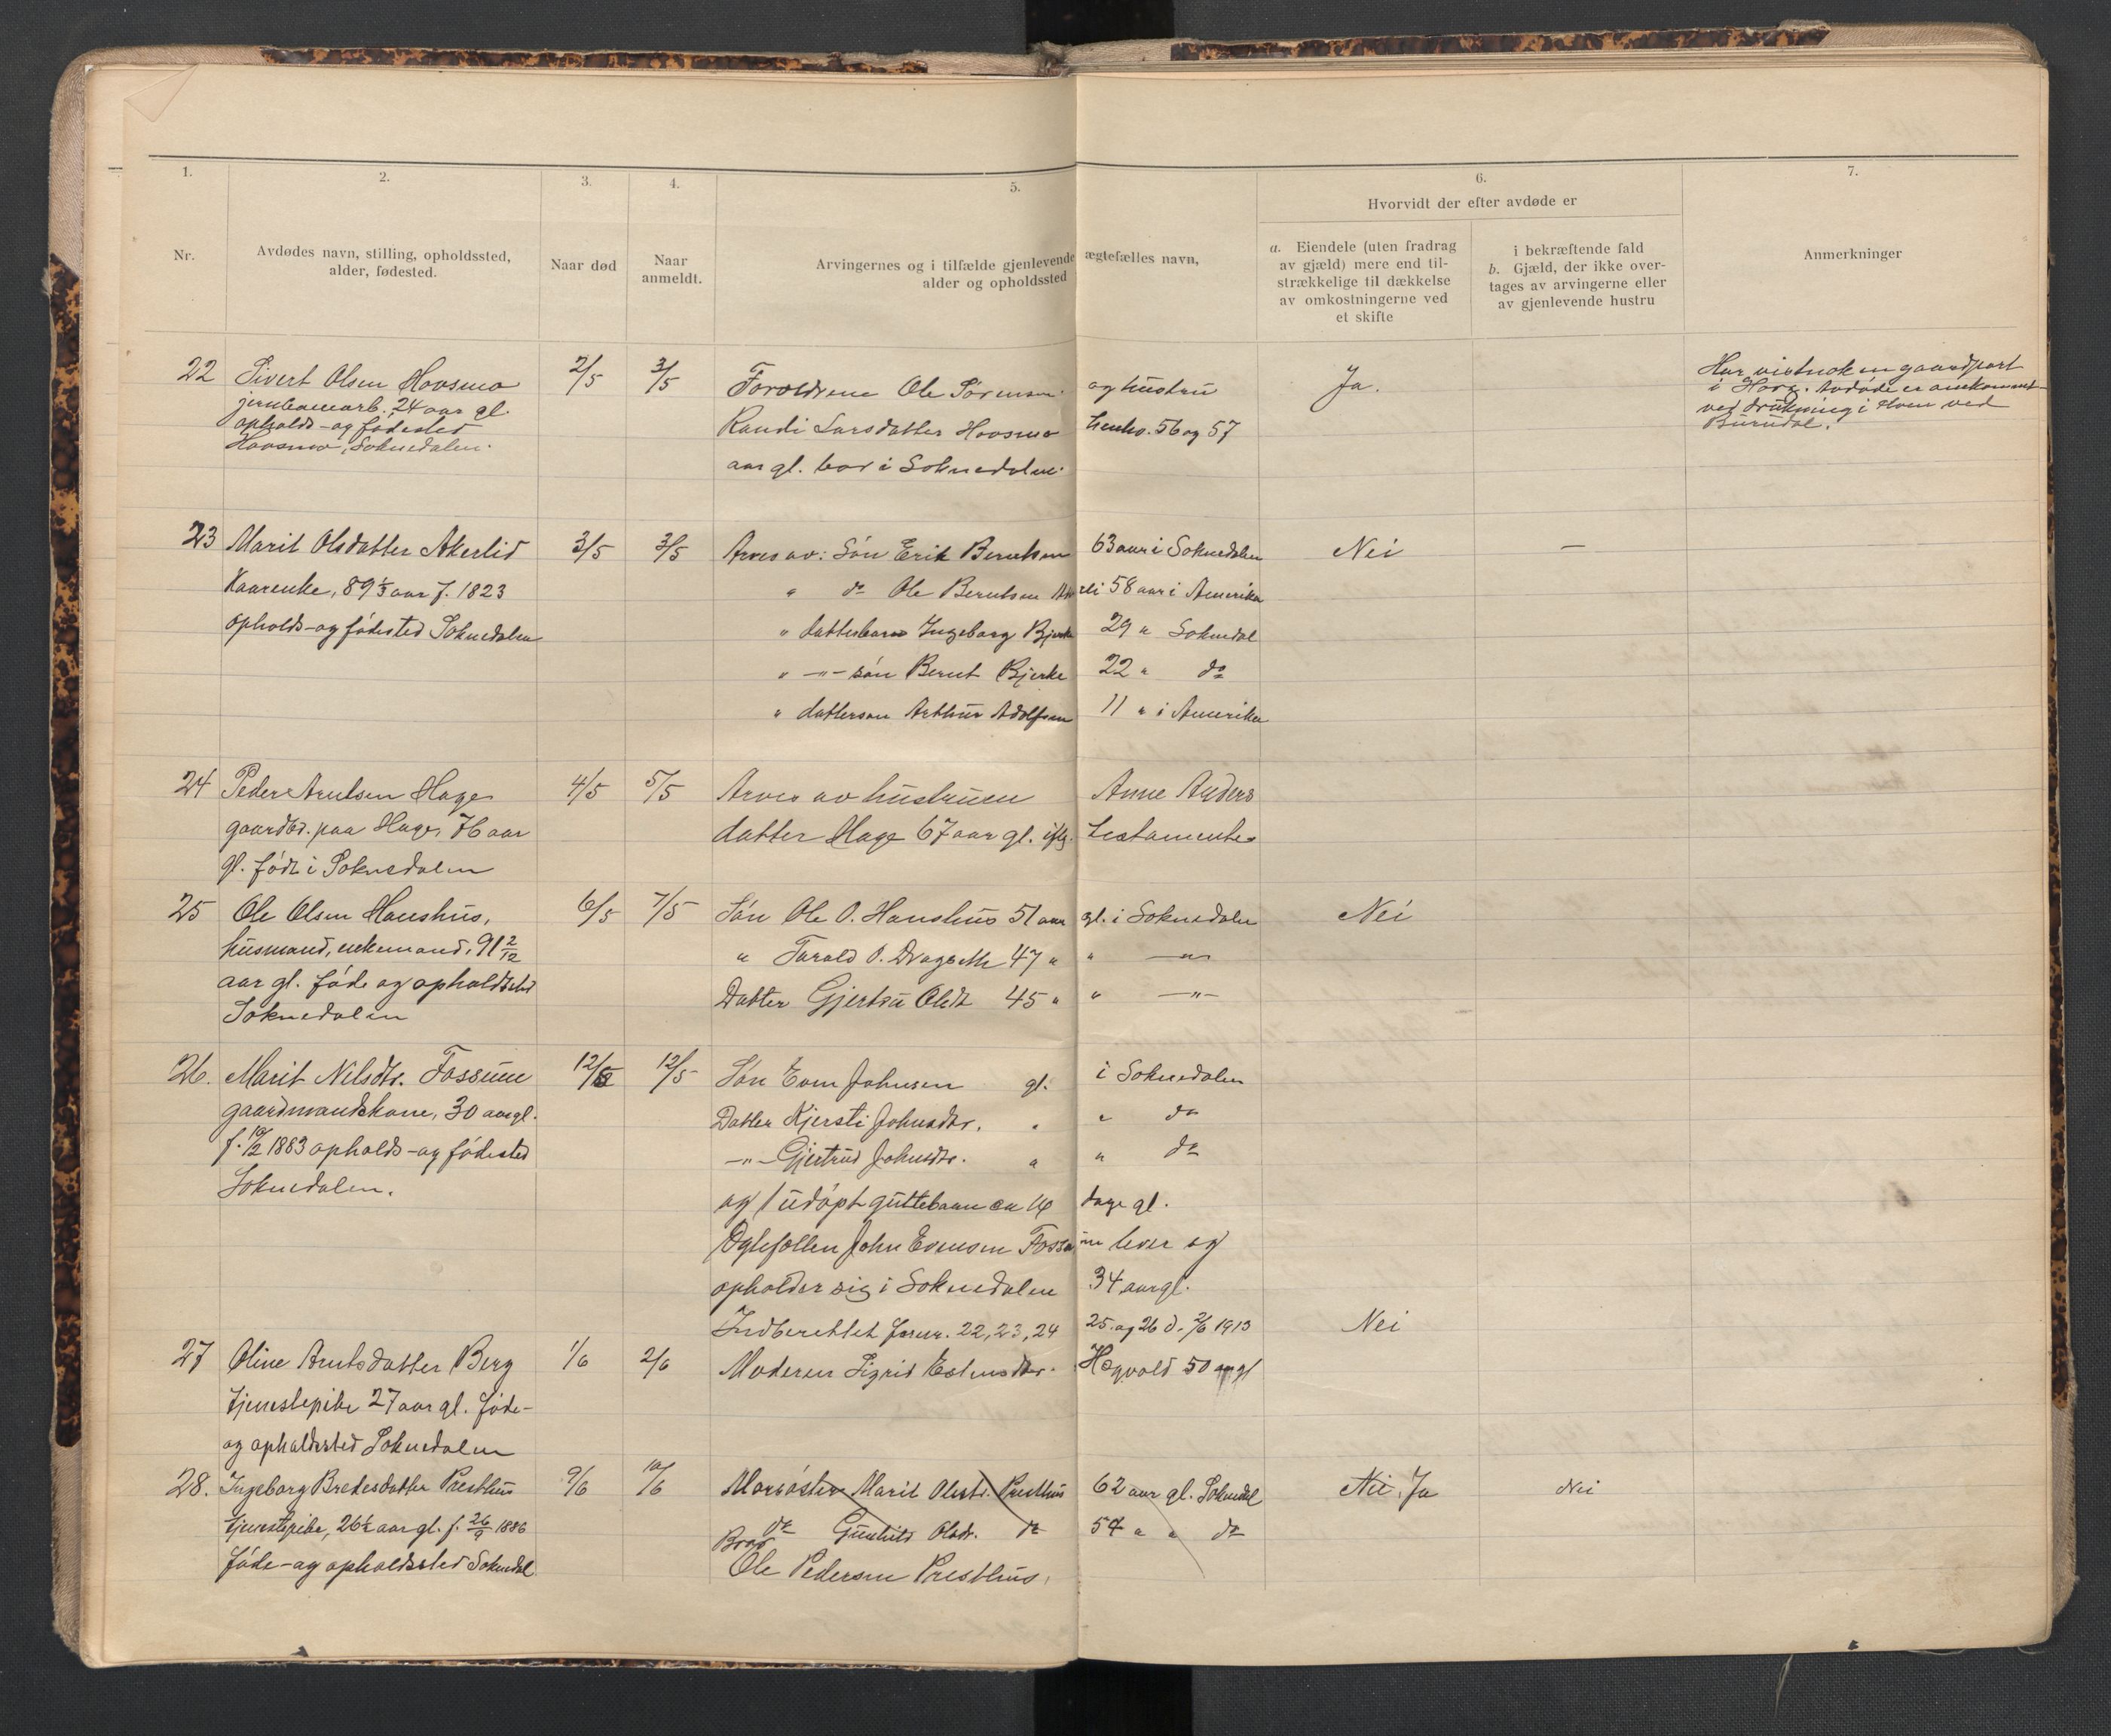 1. 2. 3. 4. 5. 6. 7.
Hvorvidt der efter avdøde er
Nr.
Avdødes navn, stilling, opholdssted,
alder, fødested.
Naar død
Naar
anmeldt.
Arvingernes og i tilfælde gjenlevende ægtefælles navn,
alder og opholdssted
a. Eiendele (uten fradrag
av gjæld) mere end til-
strækkelige til dækkelse
av omkostningerne ved
et skifte
i bekræftende fald
b. Gjæld, der ikke over-
tages av arvingerne eller
av gjenlevende hustru
Anmerkninger
22 Sivert Olsen Hovsmo 2/5 3/5 Forældrene Ole Sørensen og hustru Ja.
jernbanearb. 24 aar gl.
opholds- og fødested Randi Larsdatter Hovsmo henhv. 56 og 57
Hovsmo, Soknedalen.
aar gl. bor i Soknedalen.
Har vistnok en gaardpart
i Horg. Avdøde er omkommet
ved drukning i
23 Marit Olsdatter Akerlid 3/5 3/5 Arves av: Søn Erik Berntsen 63 aar i Soknedalen Nei —
Kaarenke, 89 1/3 aar f. 1823 " do Ole Berntsen 58 aar i Amerika
opholds- og fødested Soknedalen " datterbarn Ingeborg Bjerke 29 " Soknedal
" —"— søn Bernt Bjerke 22 " do
" dattersøn Arthur Adolfsen 11 " i Amerika
24 Peder Arntsen Hage 4/5 5/5 Arves av hustruen Anne Anders
gaardbr. paa Hage, 76 aar datter Hage 67 aar gl. iflg. testamente
gl. født i Soknedalen
25 Ole Olsen Haushus, 6/5 7/5 Søn Ole O. Haushus 51 aar gl. i Soknedalen Nei
husmand, enkemand, 91 2/12 " Tarald O. Dragseth 47 " " —"—
aar gl. føde og opholdssted Datter Gjertru Olsdt 45 " " —"—
Soknedalen
26. Marit Nilsdtr. Fossum 12/5 12/5 Søn Even Johnsen gl. i Soknedalen
gaardmandskone, 30 aar gl. Datter Kjersti Johnsdtr. " " do
f. 10/2 1883 opholds- og fødested —"— Gjertrud Johnsdtr. " " do
Soknedalen. og 1 udøpt guttebarn dage gl.
Ægtefællen John Evensen Fossum lever og
opholder sig i Soknedalen 34 aar gl.
Indberettet for nr. 22, 23, 24 25. og 26 d. 2/6 1913 Nei
27 Oline Arntsdatter Berg 1/6 2/6 Moderen Sigrid Estensdtr. Hagvold 50 aar gl
tjenestepike 27 aar gl. føde-
og opholdssted Soknedalen
28. Ingeborg Bredesdatter Presthus 9/6 10/6 Morsøster Marit Olsdtr. Presthus 62 aar gl. Soknedal Nei. Ja Nei
tjenestepike, 26 1/2 aar gl. f. 26/9 1886 do Gunhild Olsdr. do 54 " " do
Bror
føde- og opholdssted Soknedal Ole Pedersen Presthus.